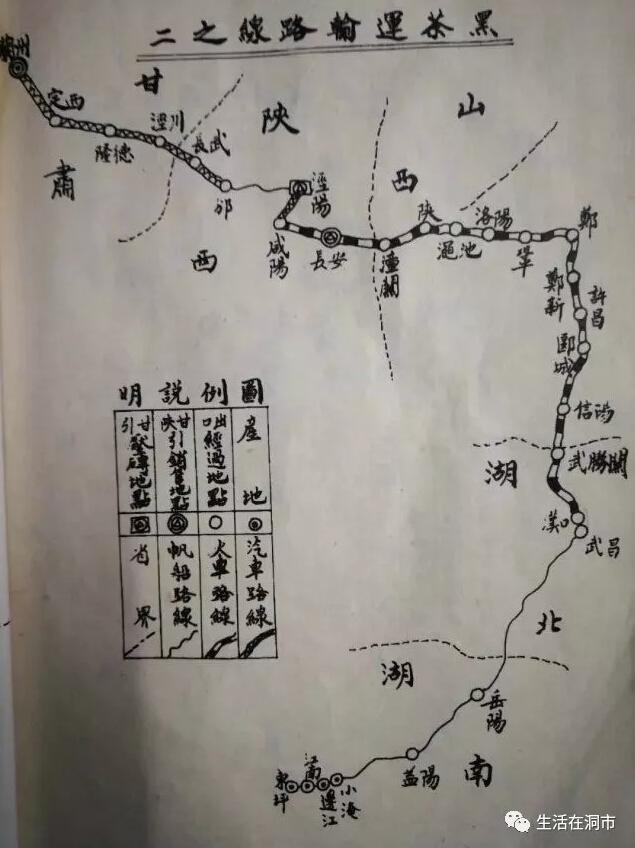 黑茶運輸路線之二
蘭州
甘肅
定西
隆德
涇川
長武
邠
陝西
涇陽
咸陽
長安
山西
潼關
陝
澠池
洛陽
鞏
鄭
鄭新
許昌
郾城
信陽
武勝關
湖北
漢口
武昌
湖南
岳陽
益陽
小淹
邊江
江南
東坪
圖例說明
產地
出口經過地點
甘陝引銷售地點
甘引壓磚地點
汽車路線
火車路線
帆船路線
省界
生活在洞市